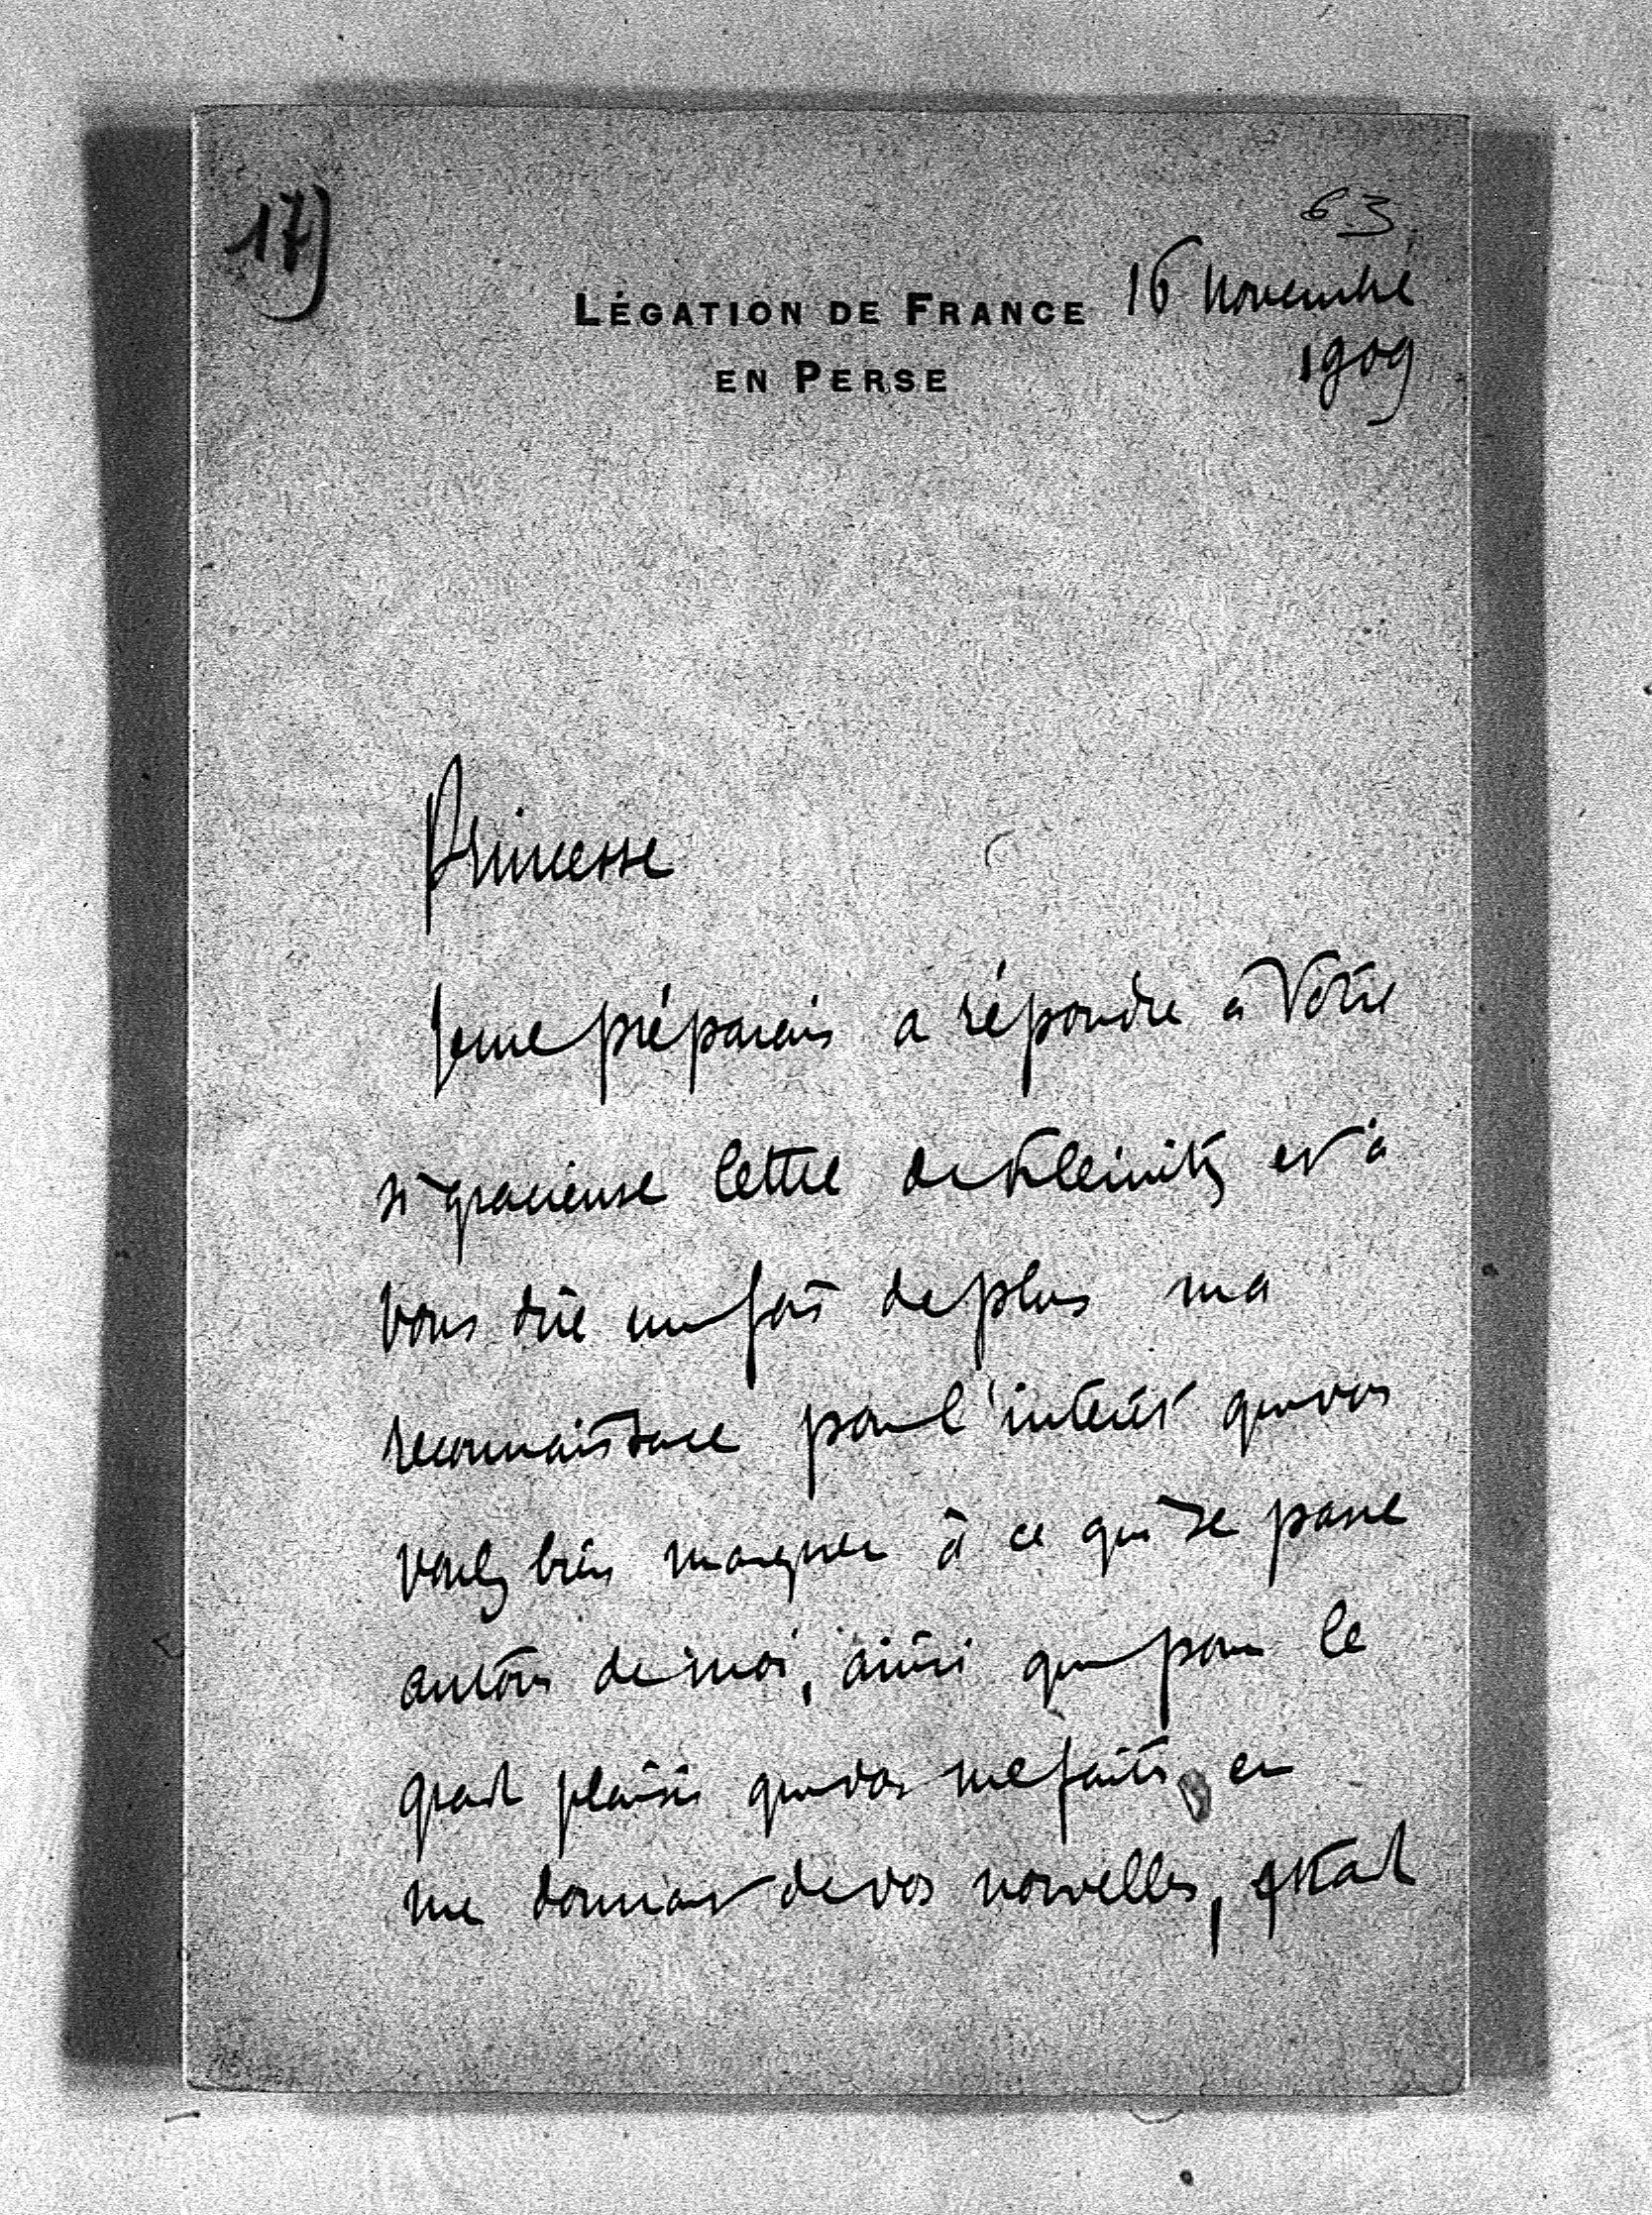 17)
63
LÉGATION DE FRANCE 16 Novembre
EN PERSE 1909
Princesse
Je me préparais a répondre à Votre
si gracieuse lettre de Kleinitz et à
vous dire une fois de plus ma
reconnaissance pour l'intérêt que vous
voulez bien marquer à ce qui se passe
autour de moi, ainsi que pour le
grand plaisir que vous me faites en
me donnant de vos nouvelles, quand